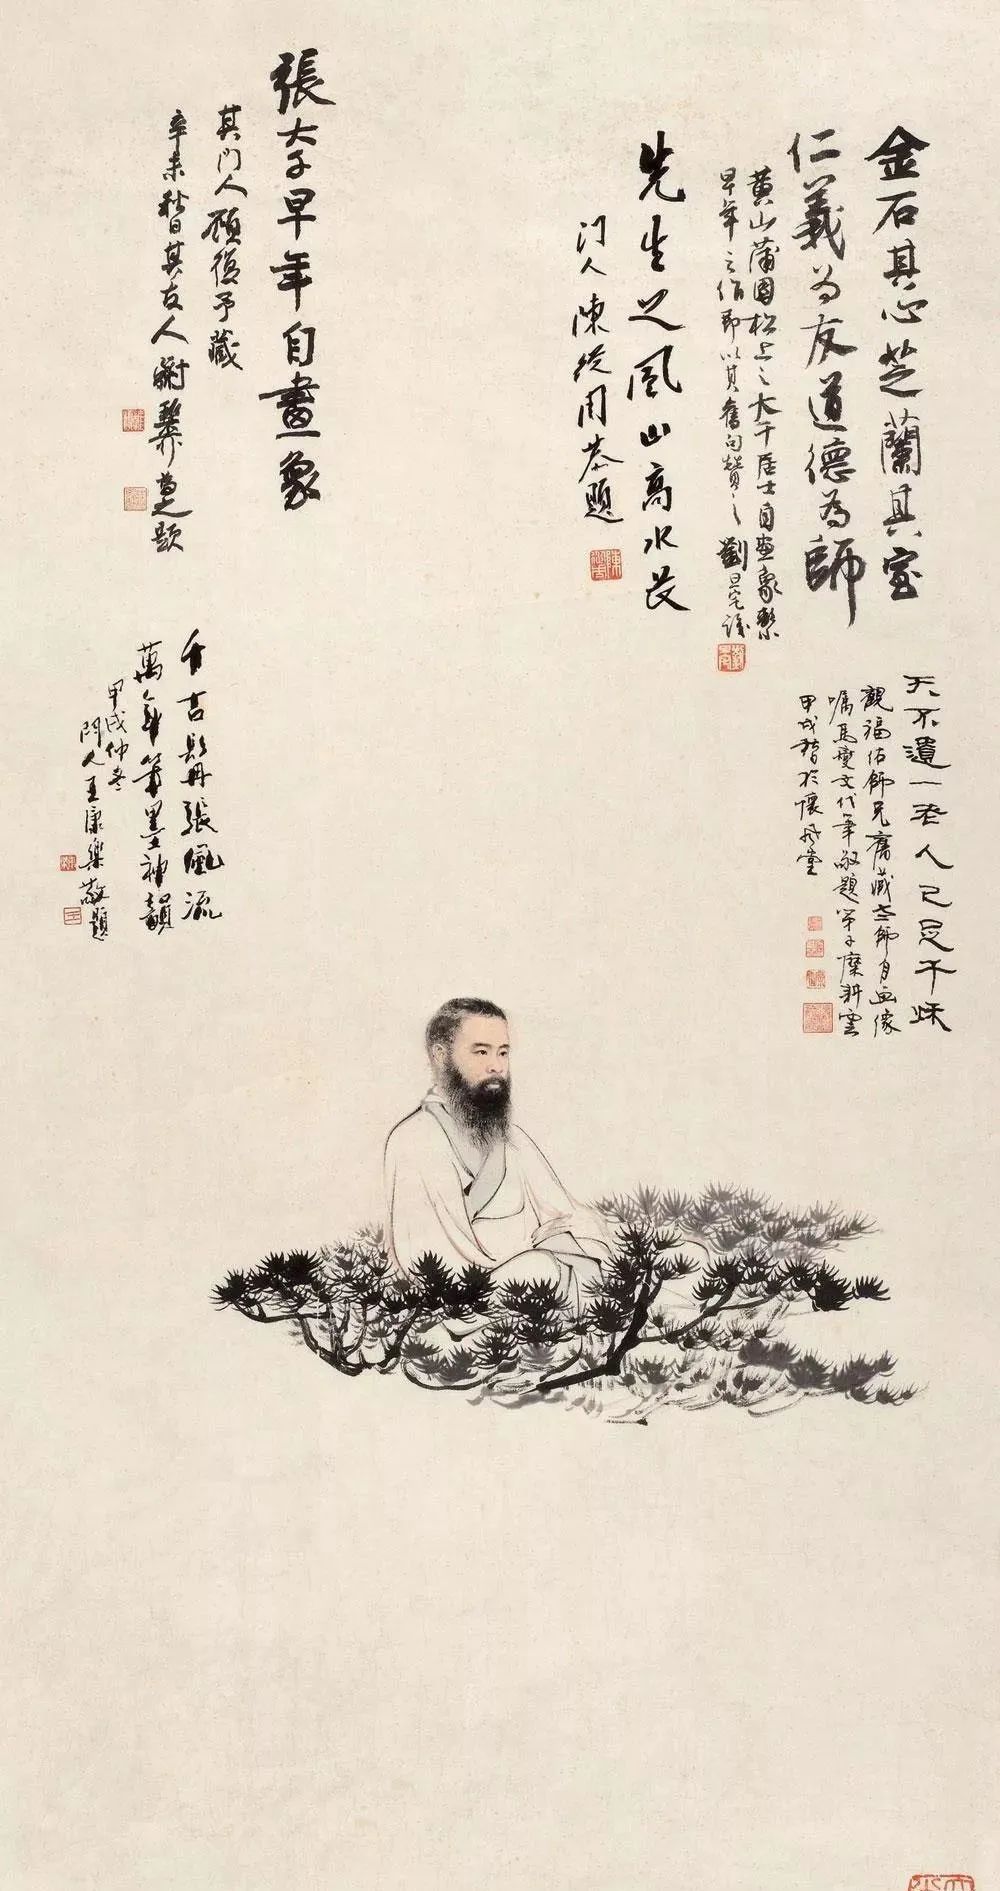 金石其心芝蘭其室
仁義為友道德為師
黄山蒲團松上之大千居士自畫象繫
早年之作即以其舊句贊之劉旦宅識
先生之風山高水長
门人陳從周恭題
張大千早年自畫象
其门人顧復予藏
辛未秋日其友人謝題
天不遺一老人已足千秋
觀福佑師兄舊藏大師自画像
囑馬燮文代筆敬題弟子糜耕雲
甲戌於風堂
千古髯張風流
萬年筆墨神韻
甲戌仲冬
門人王康樂敬題